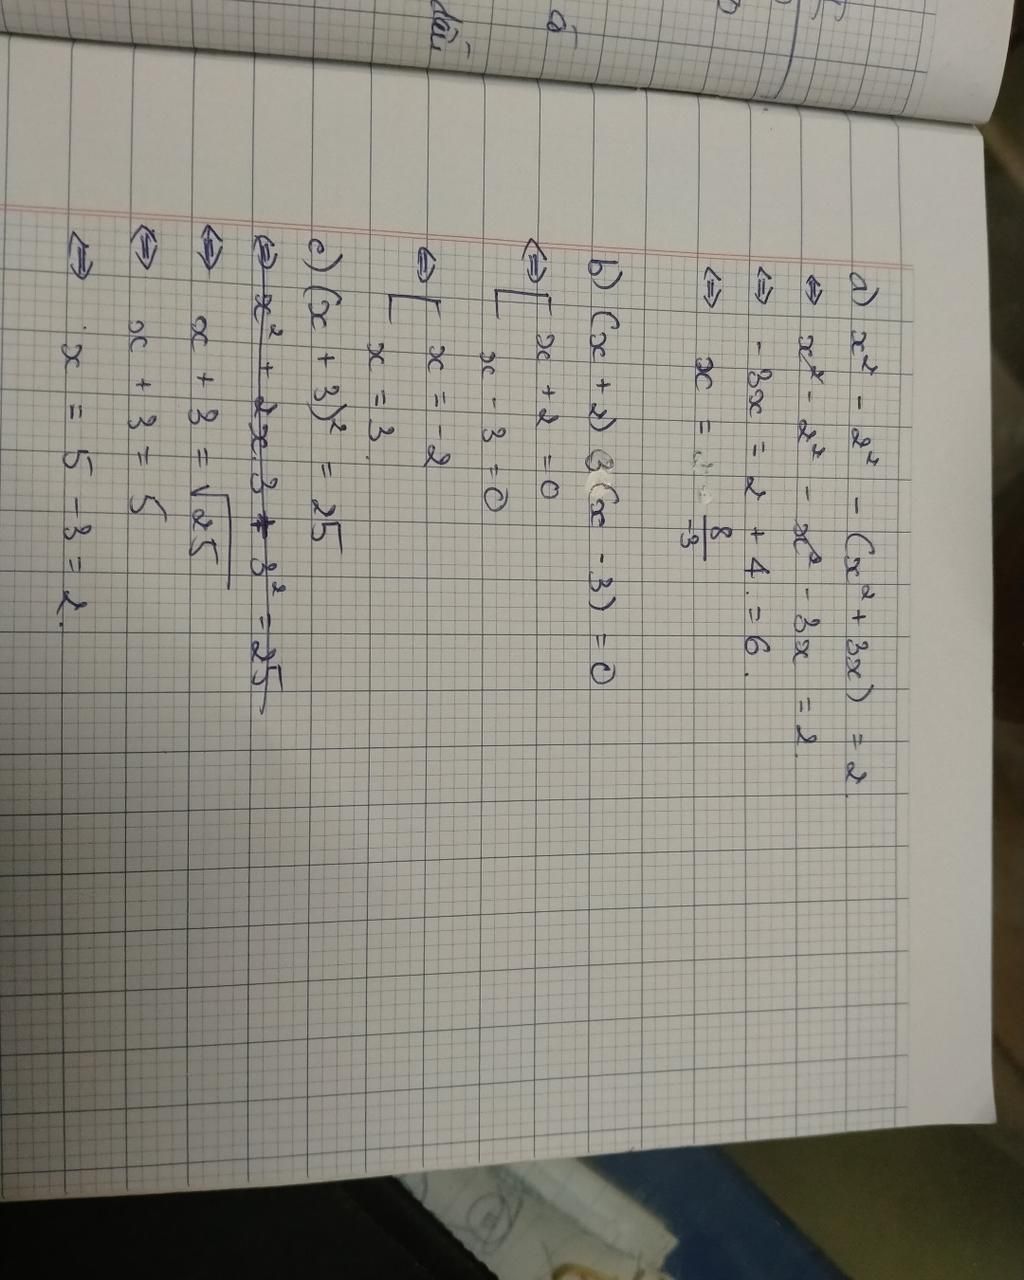 a) x² - 2² - (x² + 3x) = 2.
⇔ x² - 2² - x² - 3x = 2.
⇔ - 3x = 2 + 4. = 6.
⇔ x = 8/-3
b) (x + 2) 3(x - 3) = 0
⇔ [ x + 2 = 0
x - 3 = 0
⇔ [ x = -2
x = 3.
c) (x + 3)² = 25
⇔ x² + 2x3 + 3² = 25
⇔ x + 3 = √25
⇔ x + 3 = 5
⇔ x = 5 - 3 = 2.